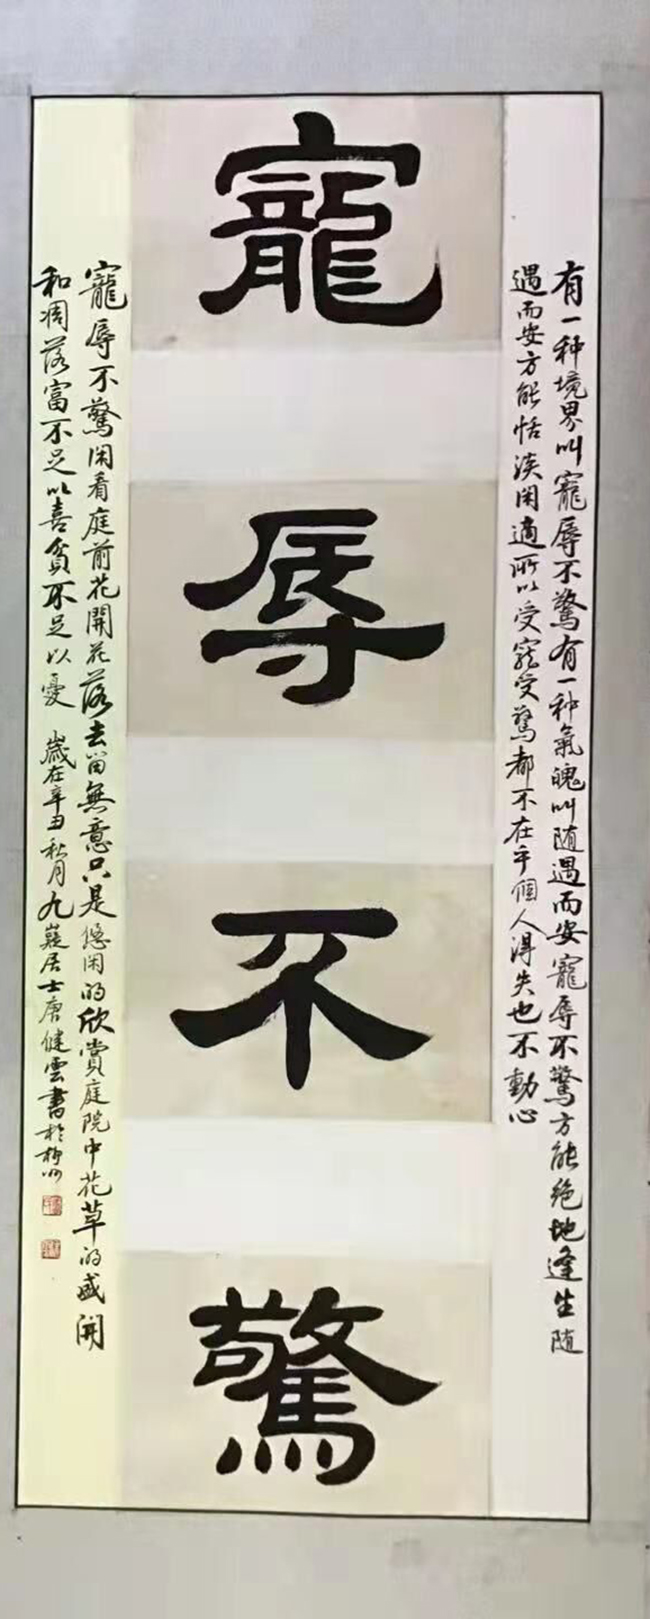 寵辱不驚
有一种境界叫寵辱不驚有一种氣魄叫随遇而安寵辱不驚方能绝地逢生随
遇而安方能恬淡闲適所以受寵受驚都不在乎個人得失也不動心
寵辱不驚闲看庭前花開花落去留無意只是悠闲的欣賞庭院中花草的盛開
和凋落富不足以喜貧不足以憂 歲在辛丑秋月九嶷居士唐健雲書於柳州